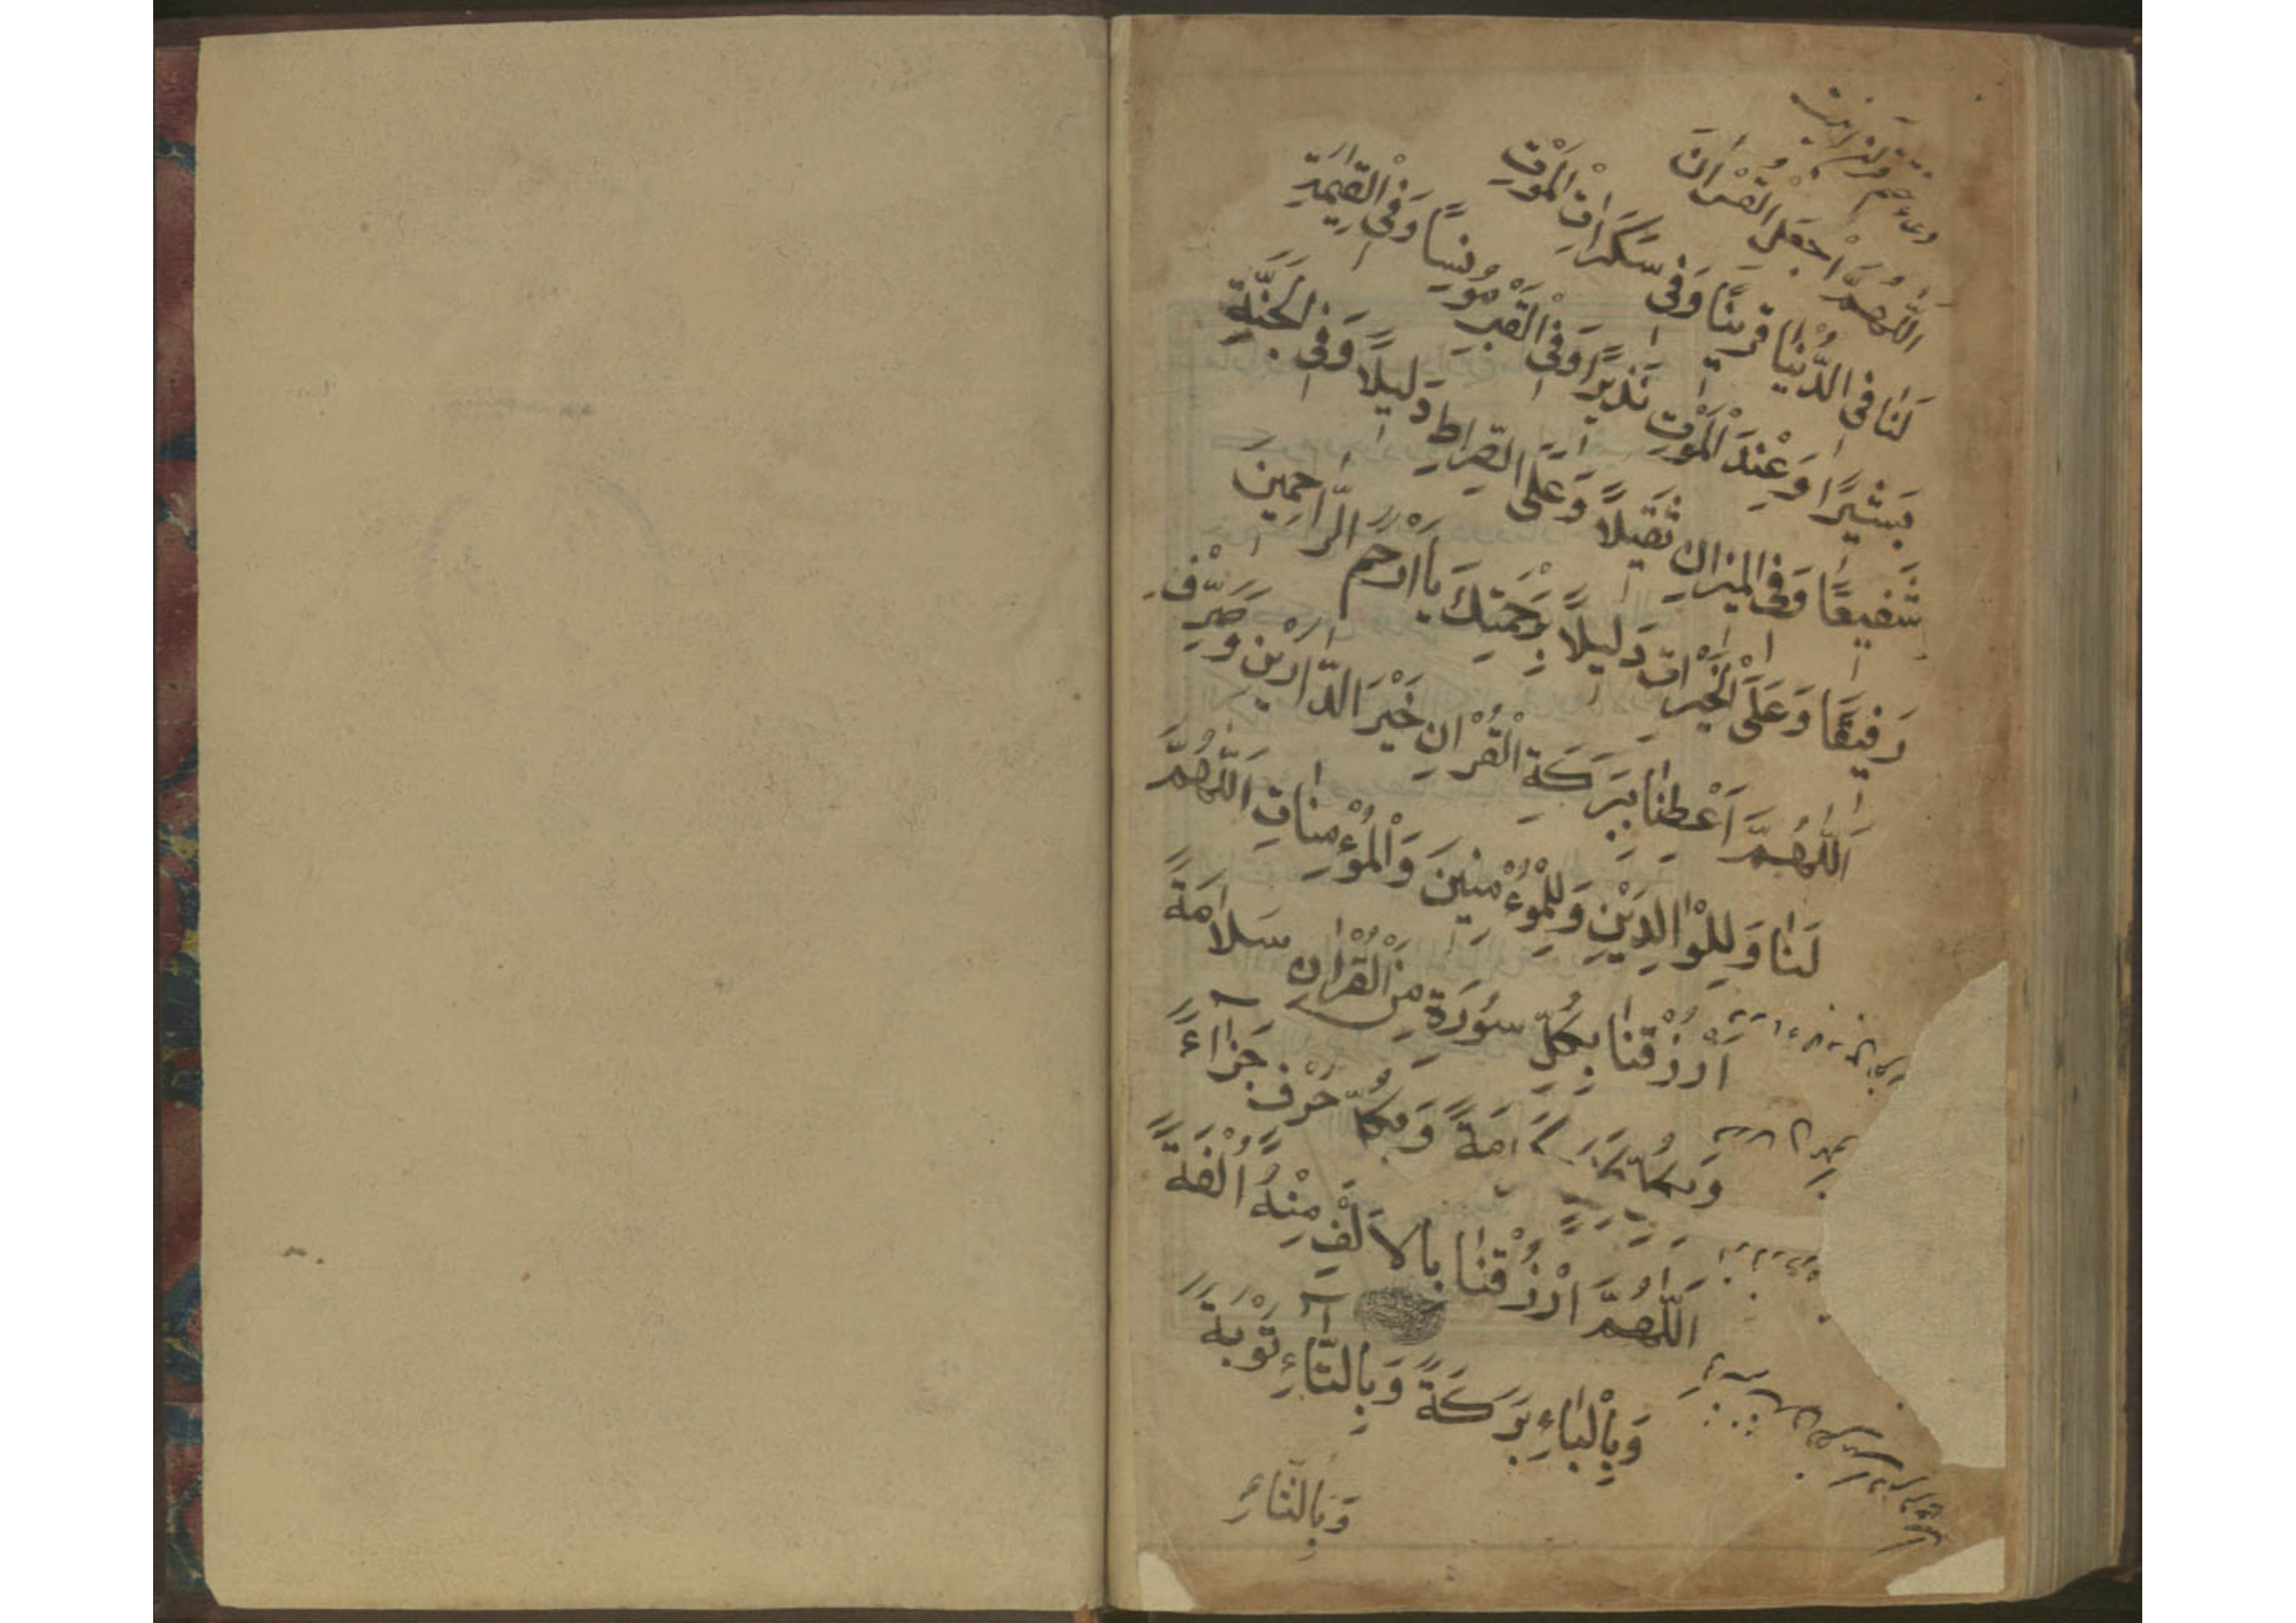 دعاء ختم قرآن اينست
اَللّٰهُمَّ اجْعَلِ الْقُرْاٰنَ
لَنَا فِى الدُّنْيَا قَرِينًا وَفِى سَكَرَاتِ الْمَوْتِ
بَشِيرًا وَعِنْدَ الْمَوْتِ نَذِيرًا وَفِى الْقَبْرِ مُونِسًا وَفِى الْقِيٰمَةِ
شَفِيعًا وَفِى الْمِيزَانِ ثَقِيلًا وَعَلَى الصِّرَاطِ دَلِيلًا وَفِى الْجَنَّةِ
رَفِيقًا وَعَلَى الْخَيْرَاتِ دَلِيلًا بِرَحْمَتِكَ يَا اَرْحَمَ الرَّاحِمِينَ
اَللّٰهُمَّ اَعْطِنَا بِبَرَكَةِ الْقُرْاٰنِ خَيْرَ الدَّارَيْنِ وَصَرِّفْ
لَنَا وَلِلْوَالِدَيْنِ وَلِلْمُوءْمِنِينَ وَالْمُؤْمِنَاتِ اَللّٰهُمَّ
اَرْزُقْنَا بِكُلِّ سُورَةٍ مِنَ الْقُرْاٰنِ سَلَامَةً
كَرَامَةً وَبِكُلِّ حَرْفٍ جَزَآءً
اَللّٰهُمَّ ارْزُقْنَا بِالْاَلْفِ مِنْهُ اُلْفَةً
وَبِالْبَاءِ بَرَكَةً وَبِالتَّآءِ تَوْبَةً
وَبِالثَّاءِ